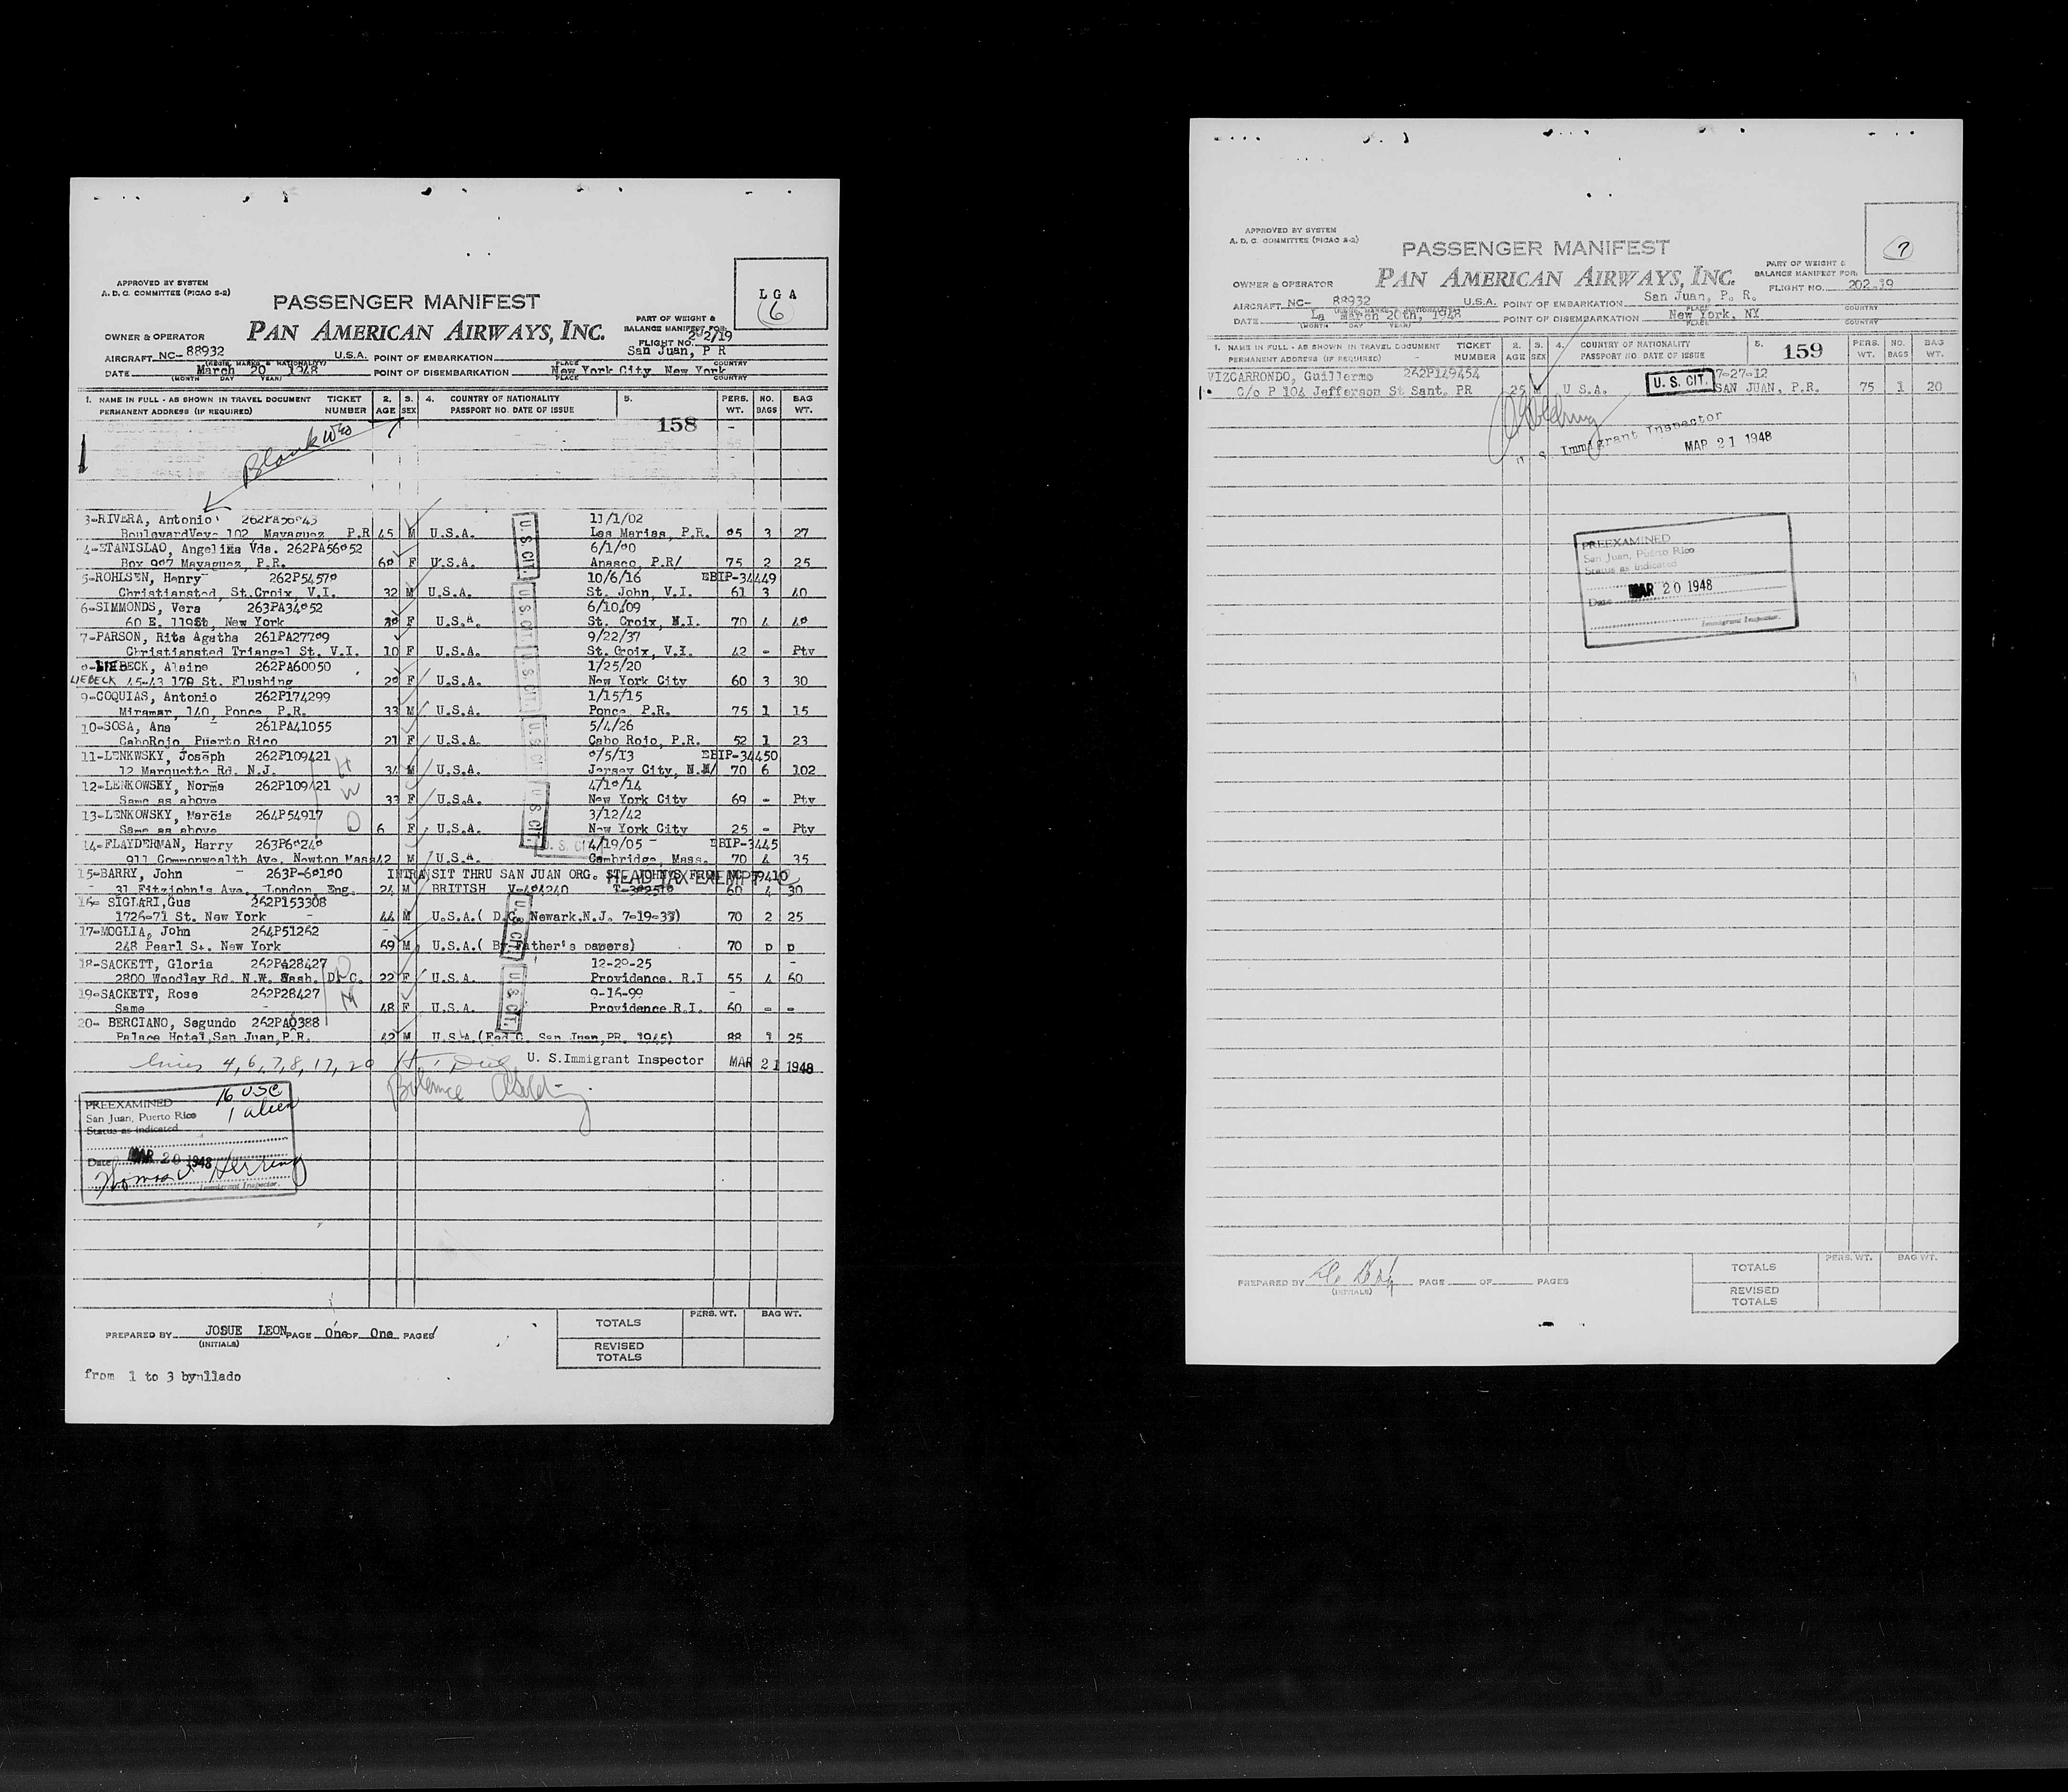 APPROVED BY SYSTEM
A. D. C. COMMITTEE (PICAO S-2)
PASSENGER MANIFEST
LGA
6
OWNER & OPERATOR
PAN AMERICAN AIRWAYS, INC.
PART OF WEIGHT &
BALANCE MANIFEST FOR:
FLIGHT NO. 202/19
AIRCRAFT NC- 88932 U.S.A. POINT OF EMBARKATION San Juan, P R
DATE March 20 1948 POINT OF DISEMBARKATION New York City, New York
(MONTH DAY YEAR) PLACE COUNTRY
1. NAME IN FULL - AS SHOWN IN TRAVEL DOCUMENT TICKET 2. 3. 4. COUNTRY OF NATIONALITY 5. PERS. NO. BAG
PERMANENT ADDRESS (IF REQUIRED) NUMBER AGE SEX PASSPORT NO. DATE OF ISSUE WT. BAGS WT.
158
Blank
3-RIVERA, Antonio 11/1/02
Mayaguez, P.R 45 M U.S.A. Las Marias, P.R. 3 27
4-ETANISLAO, Angelina Vda. 262PA56052 6/1/00
Box 907 Mayaguez, P.R. 60 F U.S.A. Anasco, P.R/ 75 2 25
5-ROHLSEN, Henry 262P54570 10/6/16 EBIP-34449
Christiansted, St.Croix, V.I. 32 M U.S.A. St. John, V.I. 61 3 40
6-SIMMONDS, Vera 263PA34052 6/10/09
60 E. 119St, New York F U.S.A. St. Croix, 70 4 40
7-PARSON, Rita Agatha 261PA27709 9/22/37
Christiansted Triangel St. V.I. 10 F U.S.A. St. Croix, V.I. 42 - Ptv
LIEBECK, Alaine 262PA60050 1/25/20
LIEBECK 45-43 170 St. Flushing F U.S.A. New York City 60 3 30
9-COQUIAS, Antonio 262P174299 1/15/15
Miramar, 140, Ponce, P.R. 33 M U.S.A. Ponce, P.R. 75 1 15
10-SOSA, Ana 261PA41055 5/4/26
CaboRojo, Puerto Rico 21 F U.S.A. Cabo Rojo, P.R. 52 1 23
11-LENKWSKY, Joseph 262P109421 EBIP-34450
12 Marquette Rd. N.J. 34 M U.S.A. Jersey City, 70 6 102
12-LENKOWSKY, Norma 262P109421 4/10/14
Same as above 33 F U.S.A. New York City 69 - Ptv
13-LENKOWSKY, Marcia 264P54917 3/12/42
Same as above 6 F U.S.A. New York City 25 - Ptv
14-FLAYDERMAN, Harry 263P60240 4/19/05 EBIP-3445
911 Commonwealth Ave. Newton Mass 42 M U.S.A. Cambridge, Mass. 70 4 35
15-BARRY, John 263P-60100 INTRANSIT THRU SAN JUAN ORG. ST. JOHNS
HEAD TAX EXEMPT
31 Fitzjohn's Ave. London, Eng. 24 M BRITISH V-404240 60 4 30
16- SIGLARI,Gus 262P153308
1726-71 St. New York 44 M U.S.A.( D.C. Newark,N.J. 7-19-33) 70 2 25
17-MOGLIA, John 264P51262
248 Pearl St. New York 69 M U.S.A.( By Father's papers) 70 p p
18-SACKETT, Gloria 262PA28427 12-20-25
2800 Woodley Rd. N.W. Wash. D.C. 22 F U.S.A. Providence. R.I 55 4 60
19-SACKETT, Rose 262P28427 9-16-99
Same 48 F U.S.A. Providence.R.I. 60 - -
20- BERCIANO, Segundo 262PA0388
Palace Hotel,San Juan,P.R. 42 M U.S.A.(Fed.C. San Juan,PR, 1945) 88 25
H
W
D
D
M
U.S. CIT.
U.S. CIT.
U.S. CIT.
U.S. CIT.
U.S. CIT.
U. S. CIT.
U.S. CIT.
U.S. CIT.
lines 4, 6, 7, 8, 17, 20
U. S.Immigrant Inspector MAR 21 1948
PREEXAMINED
San Juan, Puerto Rico
Status as indicated
16 USC
1 alien
Date MAR 20 1948
Thomas J Herring
Immigrant Inspector.
PREPARED BY JOSUE LEON PAGE One OF One PAGES
(INITIALS)
PERS. WT. BAG WT.
TOTALS
REVISED
TOTALS
from 1 to 3 by
APPROVED BY SYSTEM
A. D. C. COMMITTEE (PICAO S-2)
PASSENGER MANIFEST
7
OWNER & OPERATOR
PAN AMERICAN AIRWAYS, INC.
PART OF WEIGHT &
BALANCE MANIFEST FOR:
FLIGHT NO. 202-19
AIRCRAFT NC- 88932 U.S.A. POINT OF EMBARKATION San Juan, P. R.
DATE La March 20th, 1948 POINT OF DISEMBARKATION New York, NY
(MONTH DAY YEAR) PLACE COUNTRY
1. NAME IN FULL - AS SHOWN IN TRAVEL DOCUMENT TICKET 2. 3. 4. COUNTRY OF NATIONALITY 5. PERS. NO. BAG
PERMANENT ADDRESS (IF REQUIRED) NUMBER AGE SEX PASSPORT NO. DATE OF ISSUE WT. BAGS WT.
159
VIZCARRONDO, Guillermo 262P149454 7-27-12
1. C/o P 104 Jefferson St Sant. PR U.S.A. U. S. CIT. SAN JUAN, P.R. 75 1 20
U. S. Immigrant Inspector
MAR 21 1948
PREEXAMINED
San Juan, Puerto Rico
Status as indicated
Date MAR 20 1948
Immigrant Inspector.
PREPARED BY PAGE OF PAGES
(INITIALS)
PERS. WT. BAG WT.
TOTALS
REVISED
TOTALS